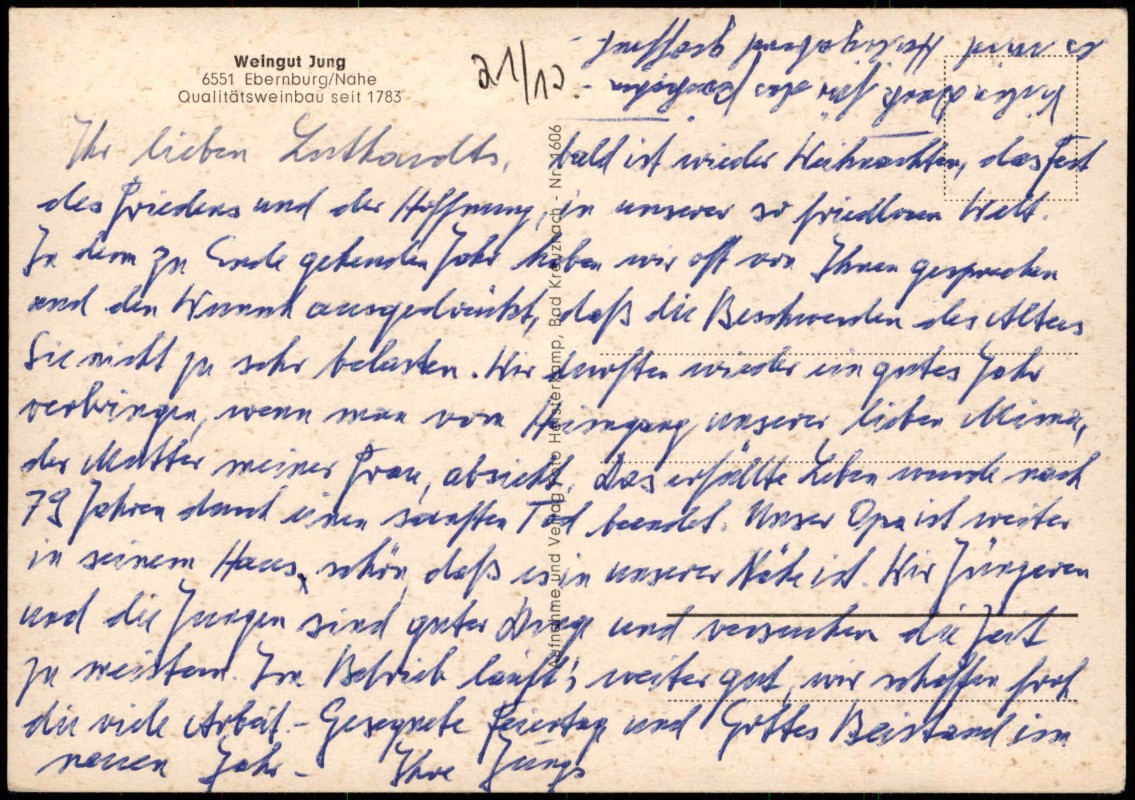 Weingut Jung
6551 Ebernburg/Nahe
Qualitätsweinbau seit 1783
21/12
Ihr lieben Luthardts, bald ist wieder Weihnachten, das Fest
des Friedens und der Hoffnung, in unserer so friedlosen Welt.
In dem zu Ende gehenden Jahr haben wir oft von Ihnen gesprochen
und den Wunsch ausgedrückt, daß die Beschwerden des Alters
Sie nicht zu sehr belasten. Wir durften wieder ein gutes Jahr
verbringen, wenn man vom Heimgang unserer lieben Mima,
der Mutter meiner Frau, absieht. Das erfüllte Leben wurde nach
79 Jahren durch einen sanften Tod beendet. Unser Opa ist weiter
in seinem Haus, schön, daß es in unserer Nähe ist. Wir Jüngeren
und die Jungen sind guter Dinge und versuchen die Zeit
zu meistern. Im Betrieb läuft's weiter gut, wir schaffen froh
die viele Arbeit. - Gesegnete Feiertage und Gottes Beistand im
neuen Jahr - Ihre Jungs
Vielen Dank für das Päckchen -
es wird Heiligabend geöffnet -
Aufnahme und Verlag Foto Heisterkamp, Bad Kreuznach - Nr. 1606